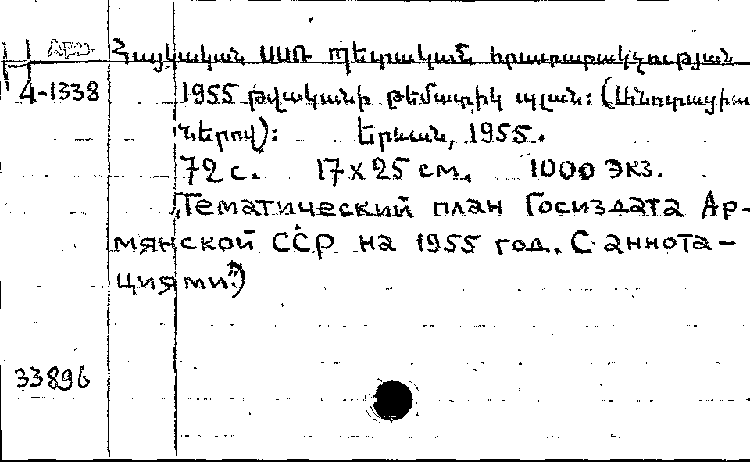 Арм. Հայկական ՍՍՌ Պետական հրատարակչության
4-1338 1955 թվականի թեմատիկ պլան: (Անոտացիա
ներով): Երևան, 1955.
72 с. 17 x 25 см. 1000 экз.
„Тематический план Госиздата Ар-
мянской ССР на 1955 год. С аннота-
циями.")
33896